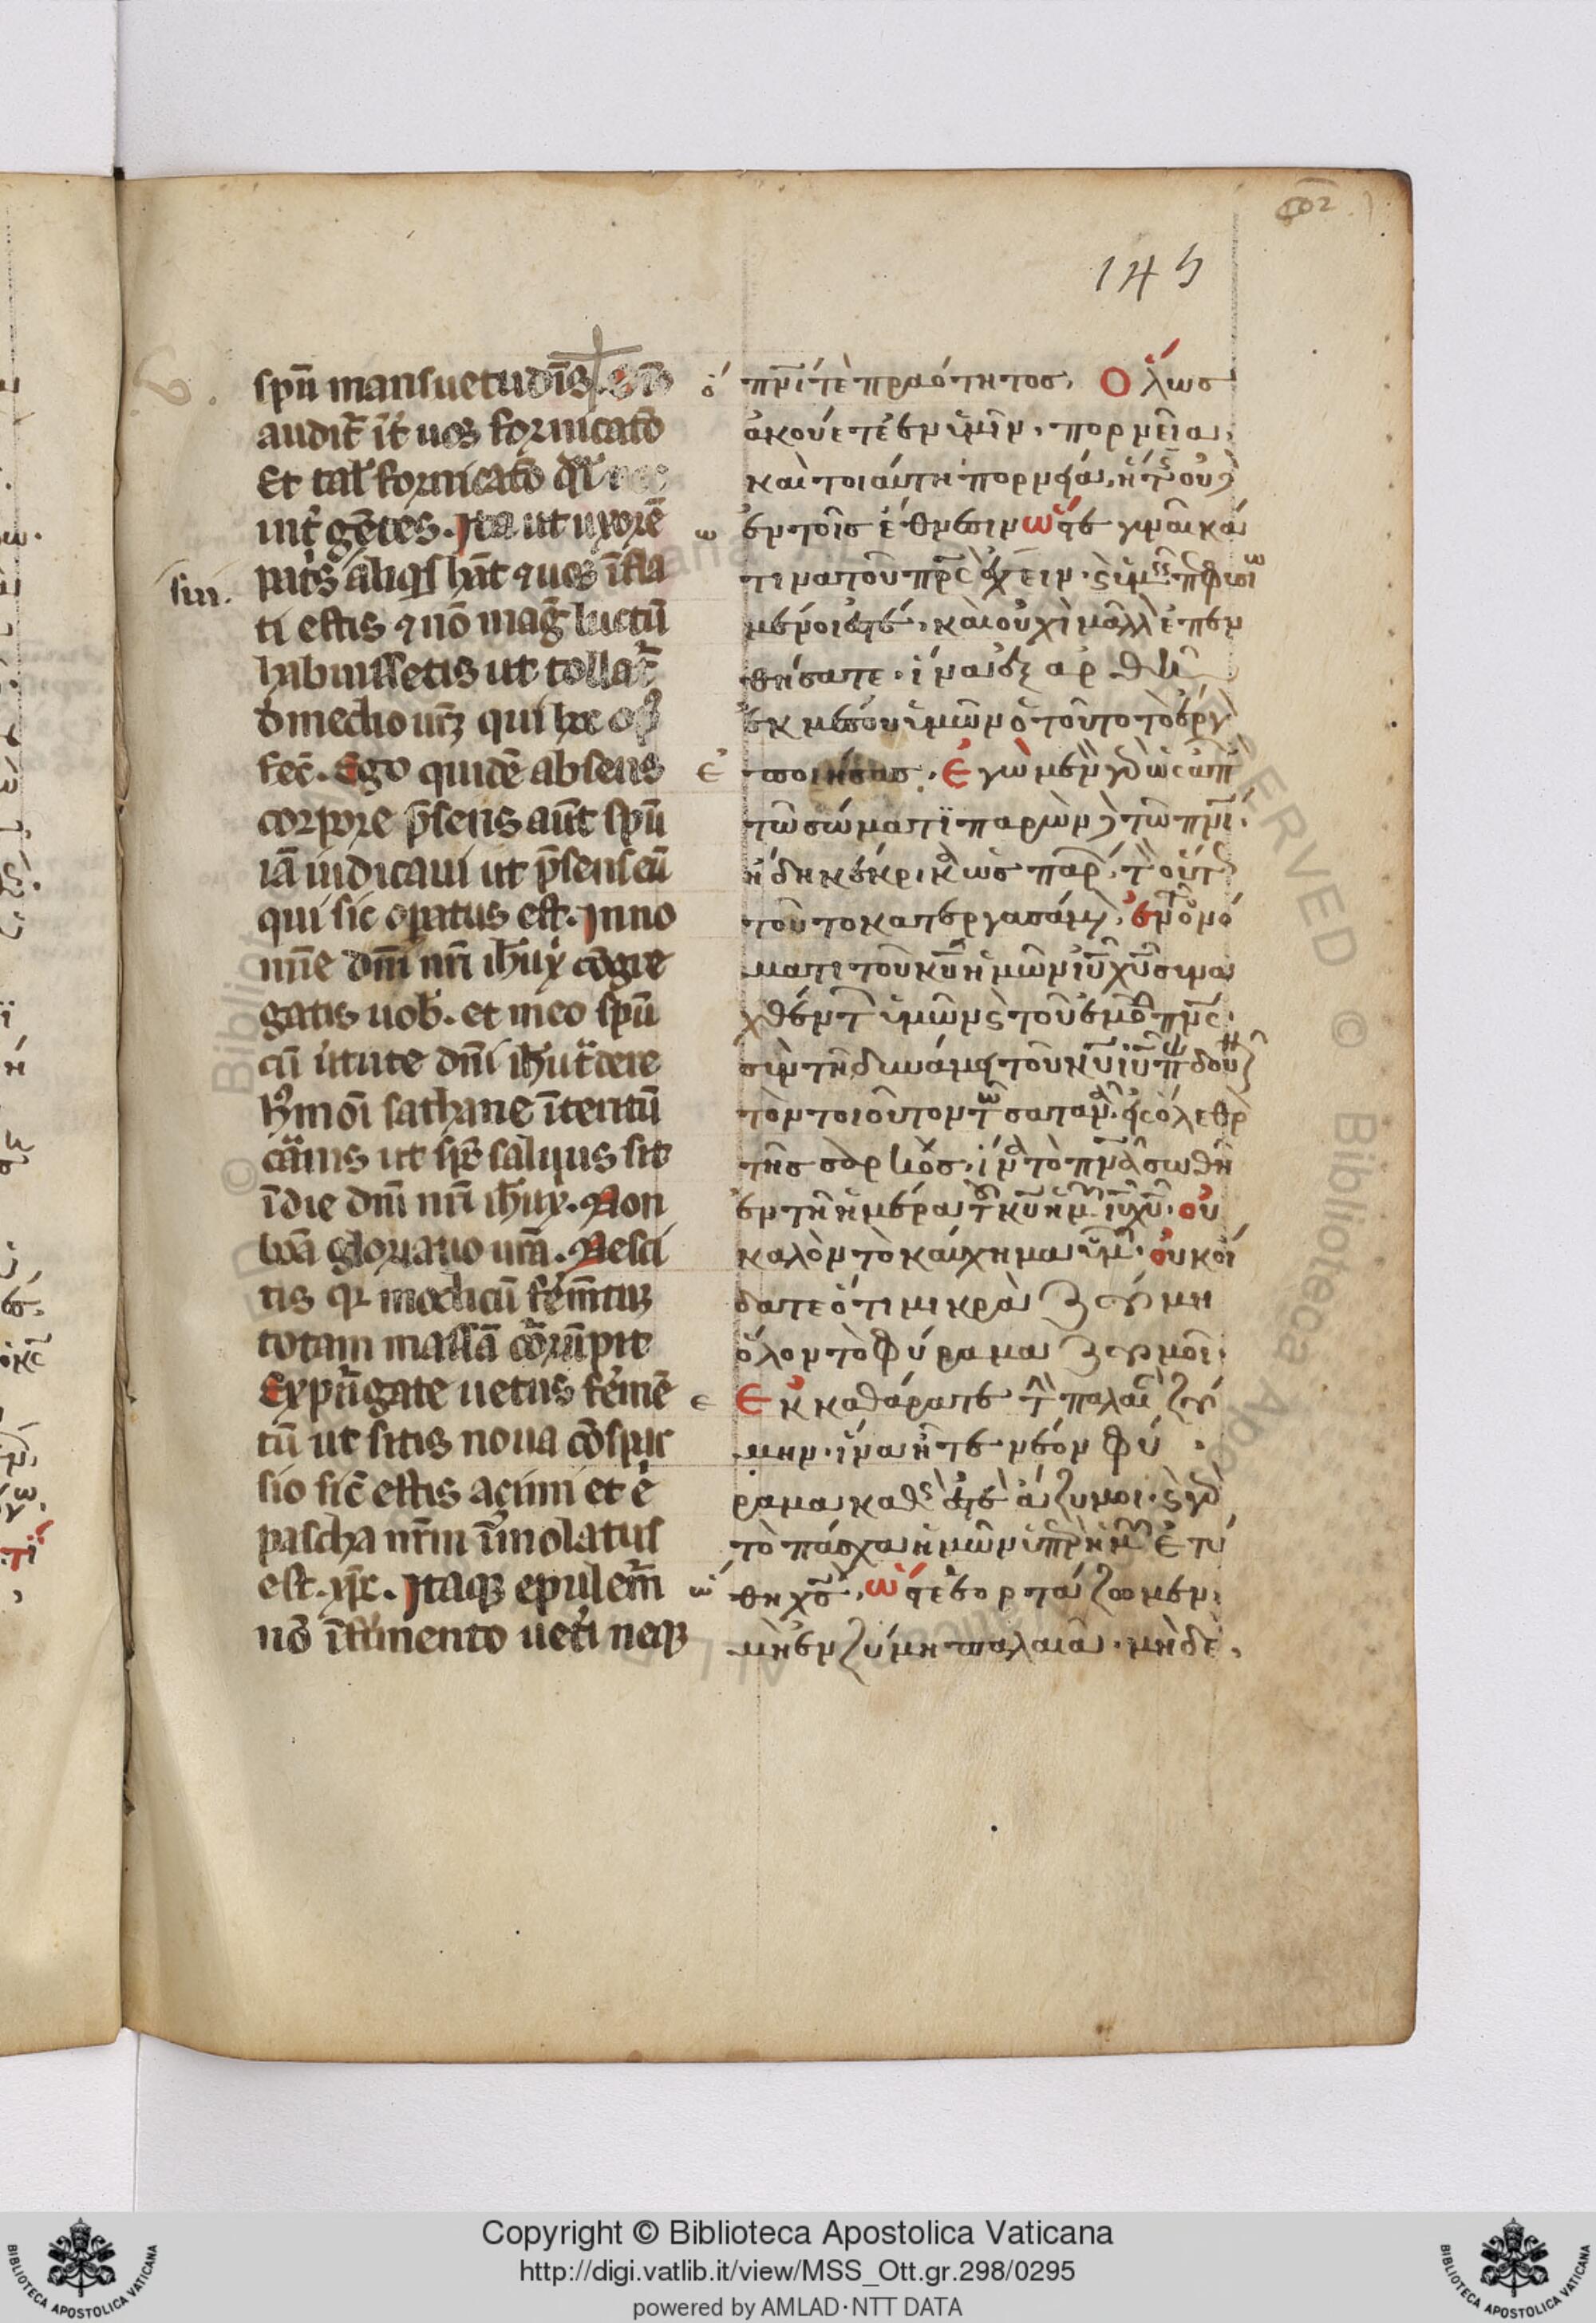 102
145
spū mansuetudīs. Oīo
audit͛ īt͛ uos fornicatō
Et tal̄ fornicatō q̄l nec
int͛ gētes. Ita ut uxorē
pat͛s aliq̄s hāt ⁊ uos īfla
iiii.
ti estis ⁊ nō maḡ luctū
habuissetis ut tollat͛
d̄ medio ur̄ꝝ qui hoc opꝰ
fec̄. Ego quidē absens
corpore p̄sens aūt spū
iā iudicaui ut p̄sens eū
qui sic opatus est. In no
mīe dn̄i nr̄i ih̄u x̄ cōgre
gatis uob̄. et meo spū
cū u͛tute dn̄i ih̄u t͛dere
hꝰmōi sathane īteritū
carnis ut sp̄s saluus sit
ī die dn̄i nr̄i ih̄u x̄. Non
bōa gloriatio ur̄a. Nesci
tis qꝛ modicū fermētuꝫ
totam massā corrūpit
Expurgate uetus fermē
tū ut sitis noua cōsper
sio sic̄ estis açimi et ē
pascha nr̄m īmolatus
est. xp̄c. Itaqꝫ epulem̄
nō ī fermento ueti neqꝫ
ὁ πν̅ι τὲ πραότητοσ, Ὅλωσ
ἀκούετε ἐν ὑμῖν, πορνεῖα,
καὶ τοιαύτη πορνεία, ἥτις οὐδὲ
ω ἐν τοῖσ ἔθνεσιν ὥστε γυναῖκά
τινα τοῦ πρ̅ς ἔχειν. ϗ ὑμεῖς πεφυσιω
μένοι ἐστέ, καὶ οὐχὶ μᾶλλ ἐπεν
θήσατε. ἵνα ἐξαρθῆ
ἐκ μέσου ὑμῶν ὁ τοῦτο τὸ ἔργ
ἐ ποιήσασ. Ἐγὼ μὲν γὰρ ὡς ἀπὼ
τῶ σώματι παρὼν δὲ τῶ πν̅ι.
ἤδη κέκρικα ὡσ παρ, τὸ οὕτ
τοῦτο κατεργασάμ, ἐν τῶ ὀνό
ματι τοῦ κ̅υ ἡμῶν ι̅υ χ̅υ συνα
χθέντ ὑμῶν ϗ τοῦ ἐμοῦ πν̅ς.
σὺν τῆ δυνάμει τοῦ κ̅υ ι̅υ π δοῦ
τὸν τοιοῦτον τῶ σατανᾶ. εἰς ὄλεθρ
τῆσ σαρκόσ. ἵνα τὸ πν̅α σωθῆ
ἐν τῆ ἡμέρα τοῦ κ̅υ ἡμ ι̅υ χ̅υ. οὐ
καλὸν τὸ καύχημα ὑμ. οὐκ οἴ
δατε ὅτι μικρὰ ζύμη
ὅλον τὸ φύραμα ζυμοῖ.
ε Ἐκκαθάρατε τ παλαι ζύ
μην. ἵνα ἦτε νέον φύ
ραμα καθώς ἐστε ἄζυμοι. ϗ γὰρ
τὸ πάσχα ἡμῶν ὑπὲρ ἡμ ἐτύ
ὡ θη χ̅σ. ὥστε ἑορτάζομεν.
μὴ ἐν ζύμη παλαιᾶ. μὴδὲ,
Copyright © Biblioteca Apostolica Vaticana
http://digi.vatlib.it/view/MSS_Ott.gr.298/0295
powered by AMLAD·NTT DATA
BIBLIOTECA APOSTOLICA VATICANA
BIBLIOTECA APOSTOLICA VATICANA